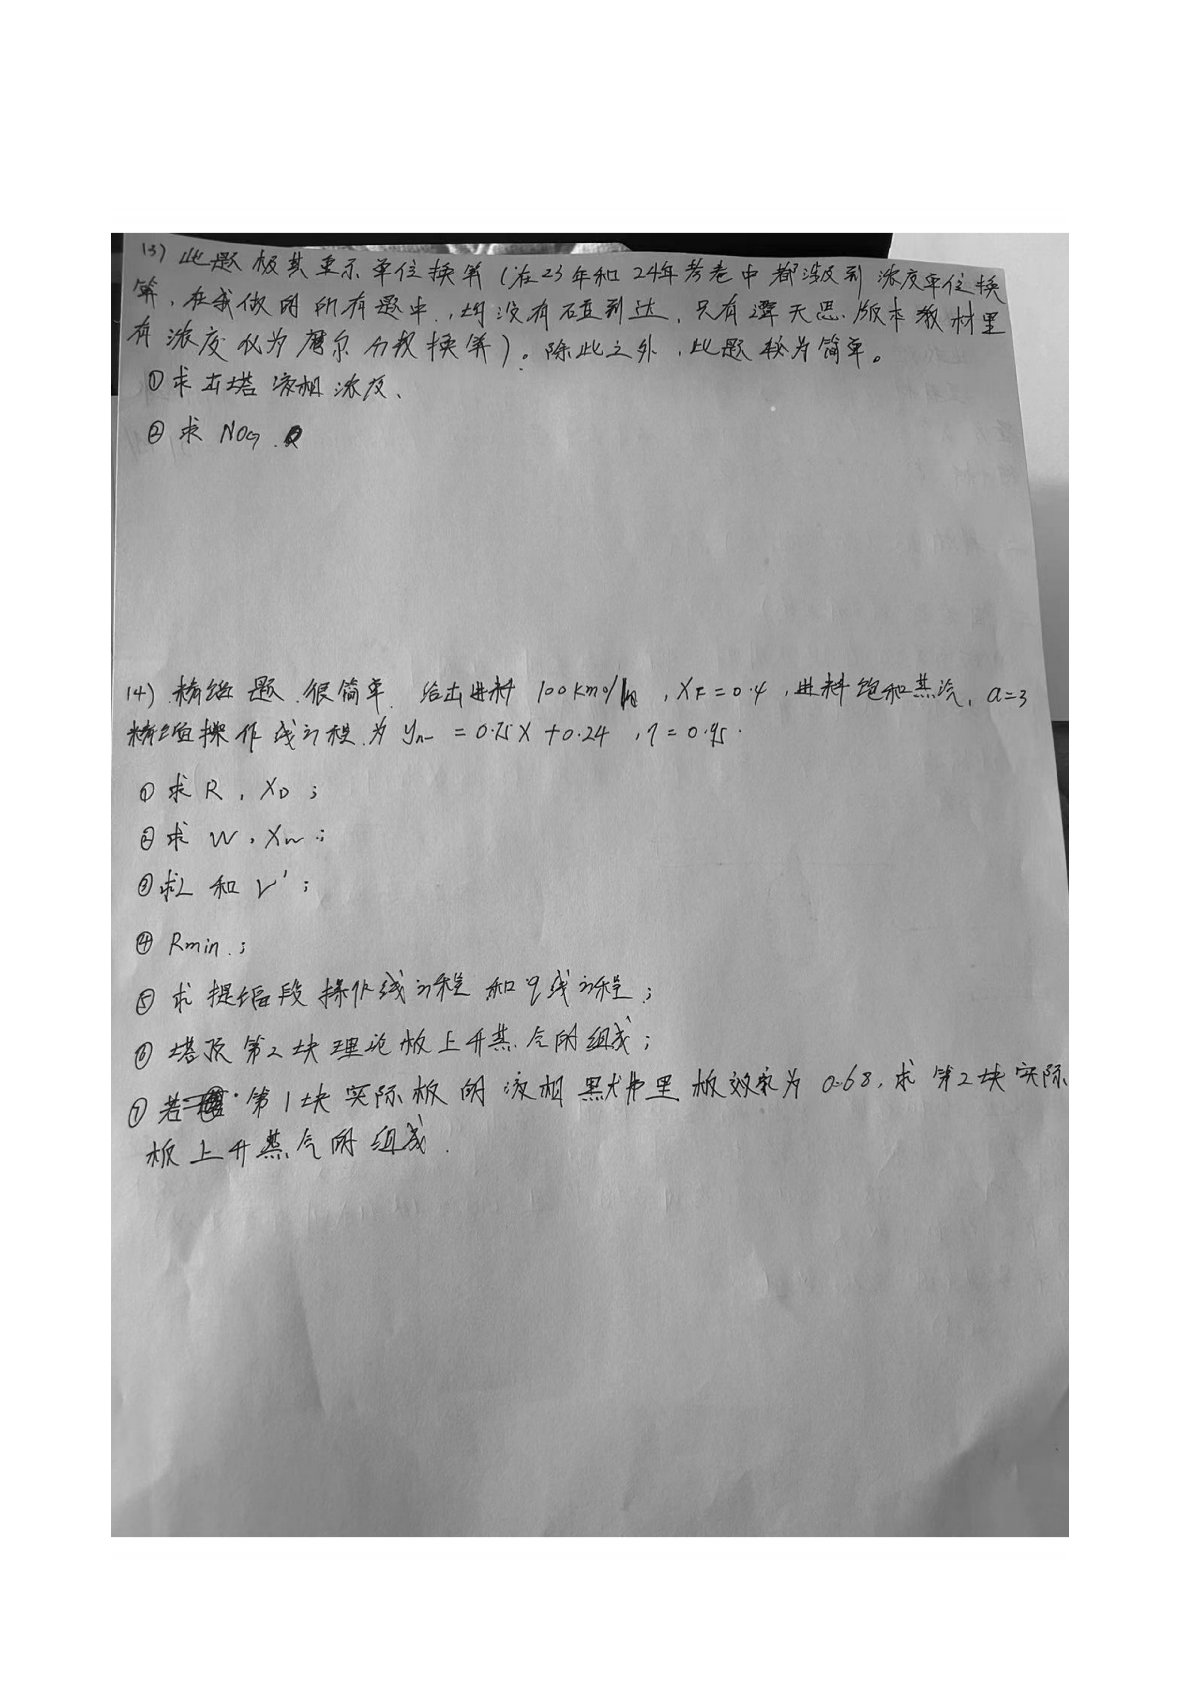 13) 此题极其重示单位换算(在23年和24年考卷中都涉及到浓度单位换
算,在我做的所有题中,均没有碰到过,只有谭天恩版本教材里
有浓度仅为摩尔分数换算)。除此之外,此题较为简单。
①求出塔液相浓度、
②求 NOG.
14) 精馏题.很简单. 给出进料 100kmol/h ,XF=0.4 ,进料饱和蒸汽, α=3
精馏操作线方程为 yn = 0.75X +0.24 ,η=0.95.
①求 R , XD ;
②求 W , Xw ;
③求L 和 V' ;
④ Rmin.;
⑤ 求提馏段操作线方程 和 q线方程;
⑥ 塔顶第2块理论板上升蒸气的组成;
⑦ 若 第1块实际板的液相默弗里板效率为 0.68, 求第2块实际
板上升蒸气的组成.